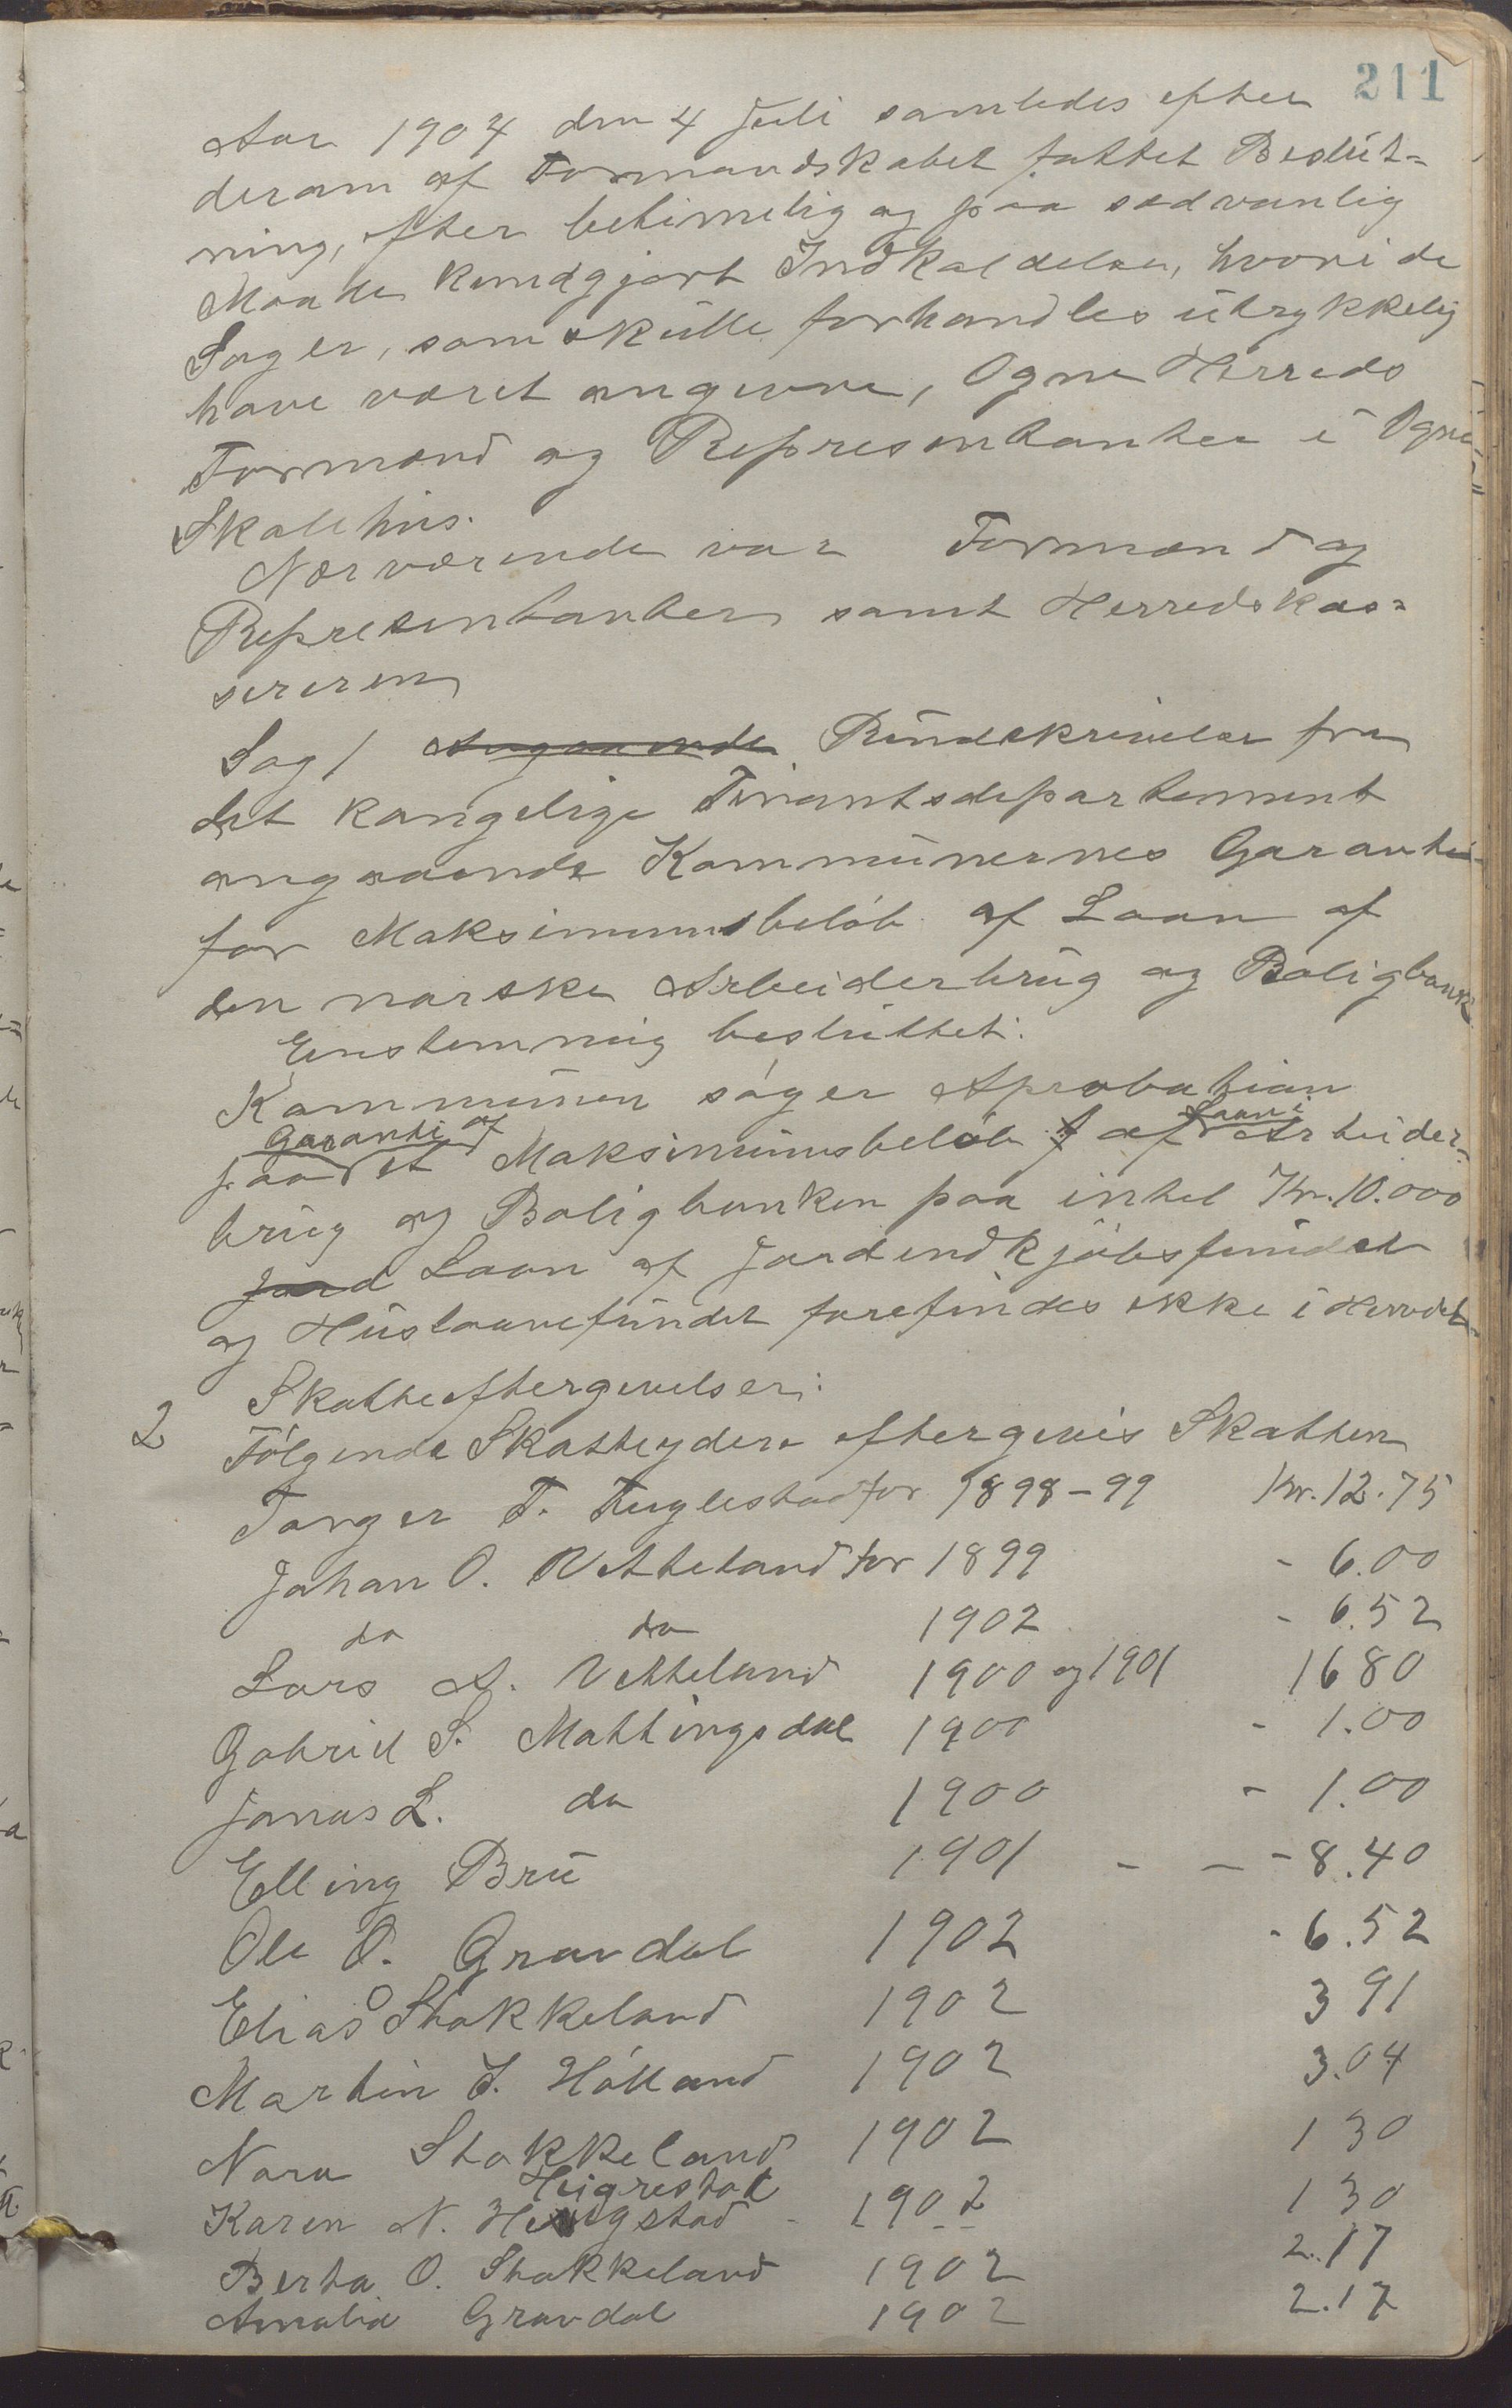 211
Aar 1904 den 4 Juli samledes efter
derom af Formandskabet fattet Beslut-
ning, efter betimelig og paa sædvanlig
Maade kundgjort Indkaldelse, hvori de
Sager, som skulle forhandles utrykkelig
have været angivne, Ogne Herreds
Formænd og Representanter i Ogne
Skolehus.
Nærværende var Formænd og
Representanter samt Herredskas-
sereren
Sag 1 Angaaende Rundskrivelse fra
det kongelige Finantsdepartement
angaaende Kommunernes Garanti
for Maksimumsbeløb af Laan af
den norske Arbeiderbrug og Boligbank
Enstemmig besluttet:
Kommunen søger Aprobation
Garanti af Laan i
paa et Maksimumsbeløb af Arbeider-
brug og Boligbanken paa indtil Kr. 10.000
Jord Laan af Jordindkjøbsfundet
og Huslaanefundet forefindes ikke i Herredet.
2 Skatteeftergivelser:
Følgende Skatteydere eftergives Skatten
Torger T. Fuglestad for 1898-99 Kr. 12.75
Johan O. Vetteland for 1899 - 6.00
do do 1902 - 6.52
Lars A. Vetteland 1900 og 1901 16 80
Gabriel S. Mattingsdal 1900 - 1.00
Jonas L. do 1900 - 1.00
Elling Bru 1901 - - - 8.40
Ole O. Gravdal 1902 - 6.52
Elias O Stokkeland 1902 3 91
Martin S. Hölland 1902 3.04
Nora Stokkeland 1902 1 30
Heigrestad
Karen N. 1902 1 30
Berta O. Stokkeland 1902 2.17
Amalia Gravdal 1902 2.17